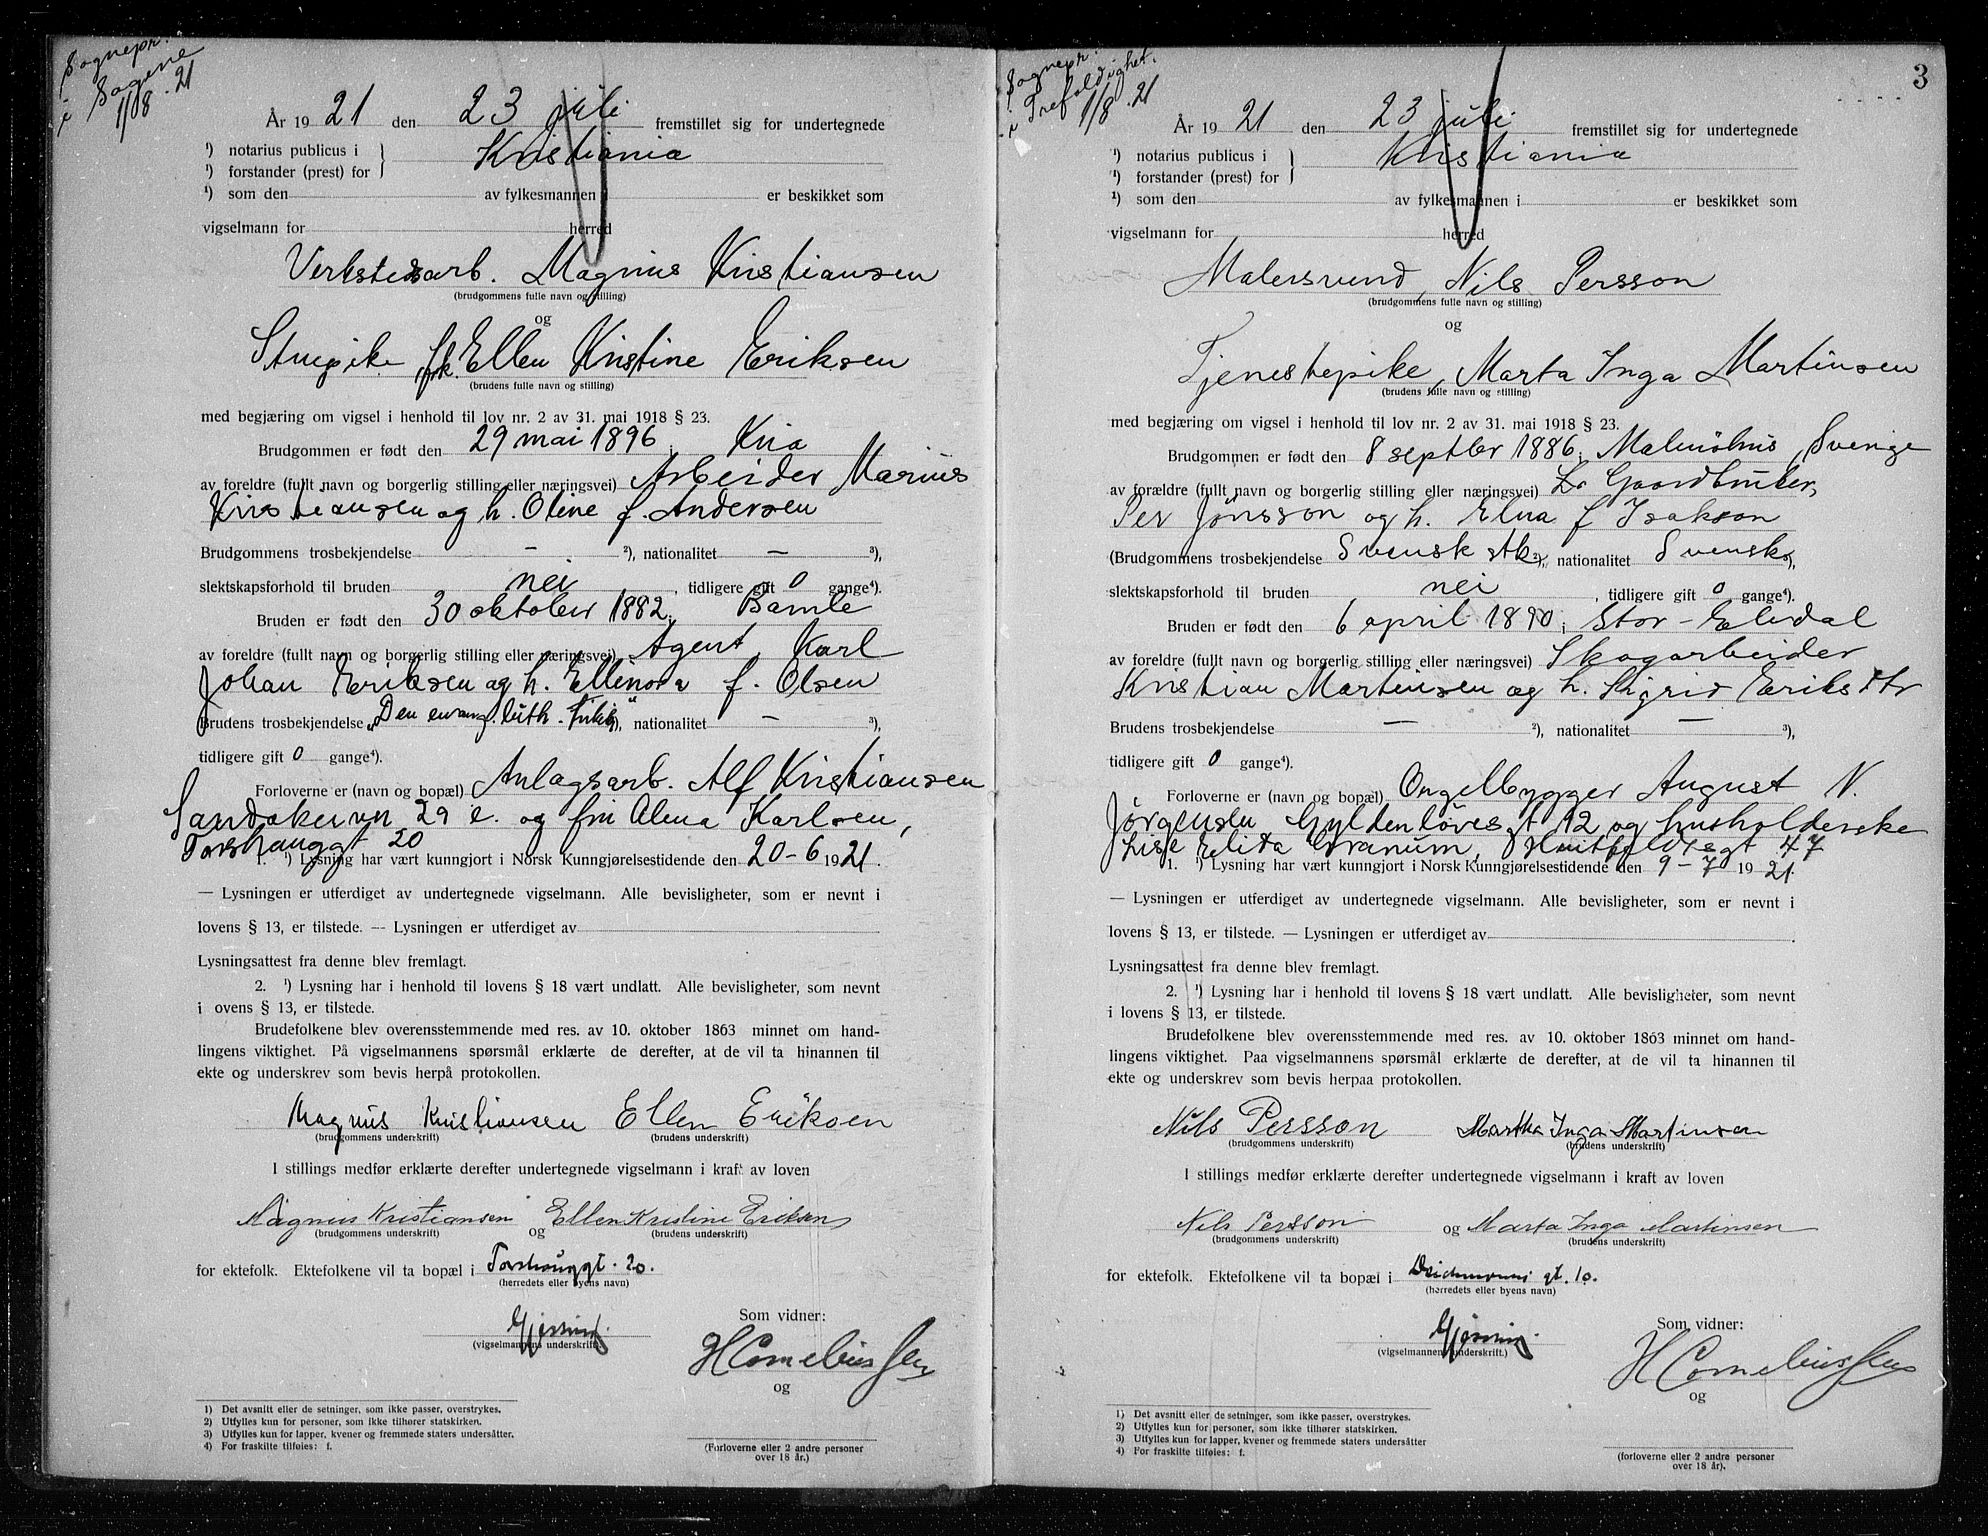 Sognepr.
i Sagene
1/8 . 21
År 19 21 den 23 juli fremstillet sig for undertegnede
¹) notarius publicus i Kristiania
¹) forstander (prest) for
¹) som den av fylkesmannen i er beskikket som
vigselmann for herred
Verkstedsarb. Magnus Kristiansen
(brudgommens fulle navn og stilling)
og
Stuepike, frk. Ellen Kristine Eriksen
(brudens fulle navn og stilling)
med begjæring om vigsel i henhold til lov nr. 2 av 31. mai 1918 § 23.
Brudgommen er født den 29 mai 1896, Kria
av foreldre (fullt navn og borgerlig stilling eller næringsvei) Arbeider Marius
Kristiansen og h. Oline f. Andersen
Brudgommens trosbekjendelse — ²), nationalitet — ³),
slektskapsforhold til bruden nei, tidligere gift 0 gange⁴).
Bruden er født den 30 oktober 1882, Bamle
av foreldre (fullt navn og borgerlig stilling eller næringsvei) Agent Karl
Johan Eriksen og h. Ellinora f. Olsen
Brudens trosbekjendelse „Den evang. luth. frikk“, nationalitet — ³),
tidligere gift 0 gange⁴).
Forloverne er (navn og bopæl) Anlagsarb. Alf Kristiansen
Sandakervn 29 e. og fru Alma Karlsen,
Torshauggt 20
1. ¹) Lysning har vært kunngjort i Norsk Kunngjørelsestidende den 20-6 1921.
— Lysningen er utferdiget av undertegnede vigselmann. Alle bevisligheter, som er nevnt i
lovens § 13, er tilstede. — Lysningen er utferdiget av
Lysningsattest fra denne blev fremlagt.
2. ¹) Lysning har i henhold til lovens § 18 vært undlatt. Alle bevisligheter, som nevnt
i ovens § 13, er tilstede.
Brudefolkene blev overensstemmende med res. av 10. oktober 1863 minnet om hand-
lingens viktighet. På vigselmannens spørsmål erklærte de derefter, at de vil ta hinannen til
ekte og underskrev som bevis herpå protokollen.
Magnus Kristiansen Ellen Eriksen
(brudgommens underskrift) (brudens underskrift)
I stillings medfør erklærte derefter undertegnede vigselmann i kraft av loven
Magnus Kristiansen og Ellen Kristine Eriksen
(brudgommens underskrift) (brudens underskrift)
for ektefolk. Ektefolkene vil ta bopæl i Torshauggt. 20.
(herredets eller byens navn)
Som vidner:
Gjessing.
(vigselmannens underskrift.)
H Corneliussen
og
1) Det avsnitt eller de setninger, som ikke passer, overstrykes.
2) Utfylles kun for personer, som ikke tilhører statskirken.
3) Utfylles kun for lapper, kvener og fremmede staters undersåtter.
4) For fraskilte tilføies: f.
(Forloverne eller 2 andre personer
over 18 år.)
3
Sognepr.
i Trefoldighet.
1/8 . 21
År 19 21 den 23 juli fremstillet sig for undertegnede
¹) notarius publicus i Kristiania
¹) forstander (prest) for
¹) som den av fylkesmannen i er beskikket som
vigselmann for herred
Malersvend, Nils Persson
(brudgommens fulle navn og stilling)
og
Tjenestepike, Marta Inga Martinsen
(brudens fulle navn og stilling)
med begjæring om vigsel i henhold til lov nr. 2 av 31. mai 1918 § 23.
Brudgommen er født den 8 septbr 1886, Malmöhus, Sverige
av forældre (fullt navn og borgerlig stilling eller næringsvei) Gaardbruker,
Per Jönsson og h. Elna f Isakson
(Brudgommens trosbekjendelse Svensk stk ²), nationalitet Svensk ³),
slektskapsforhold til bruden nei, tidligere gift 0 gange⁴).
Bruden er født den 6 april 1890, Stor-Elvdal
av foreldre (fullt navn og borgerlig stilling eller næringsvei) Skogarbeider
Kristian Martinsen og h. Sigrid Eriksdtr
Brudens trosbekjendelse — ²), nationalitet — ³),
tidligere gift 0 gange⁴).
Forloverne er (navn og bopæl) Orgelbygger August N.
Jørgensen Gyldenløvesgt 12 og husholderske
Lise Elida Granum, Huitfeldtsgt 47
1. ¹) Lysning har vært kunngjort i Norsk Kunngjørelsestidende den 9-7 1921.
— Lysningen er utferdiget av undertegnede vigselmann. Alle bevisligheter, som er nevnt i
lovens § 13, er tilstede. — Lysningen er utferdiget av
Lysningsattest fra denne blev fremlagt.
2. ¹) Lysning har i henhold til lovens § 18 vært undlatt. Alle bevisligheter, som nevnt
i lovens § 13, er tilstede.
Brudefolkene blev overensstemmende med res. av 10. oktober 1863 minnet om hand-
lingens viktighet. Paa vigselmannens spørsmål erklærte de derefter, at de vil ta hinannen til
ekte og underskrev som bevis herpaa protokollen.
Nils Persson Martha Inga Martinsen
(brudgommens underskrift) (brudens underskrift)
I stillings medfør erklærte derefter undertegnede vigselmann i kraft av loven
Nils Persson og Marta Inga Martinsen
(brudgommens underskrift) (brudens underskrift)
for ektefolk. Ektefolkene vil ta bopæl i Deichmans gt. 10.
(herredets eller byens navn)
Som vidner:
Gjessing.
(vigselmannens underskrift.)
H Corneliussen
og
1) Det avsnitt eller de setninger, som ikke passer, overstrykes.
2) Utfylles kun for personer, som ikke tilhører statskirken.
3) Utfylles kun for lapper, kvener og fremmede staters undersåtter
4) For fraskilte tilføies: f.
(forloverne eller 2 andre personer
over 18 år).